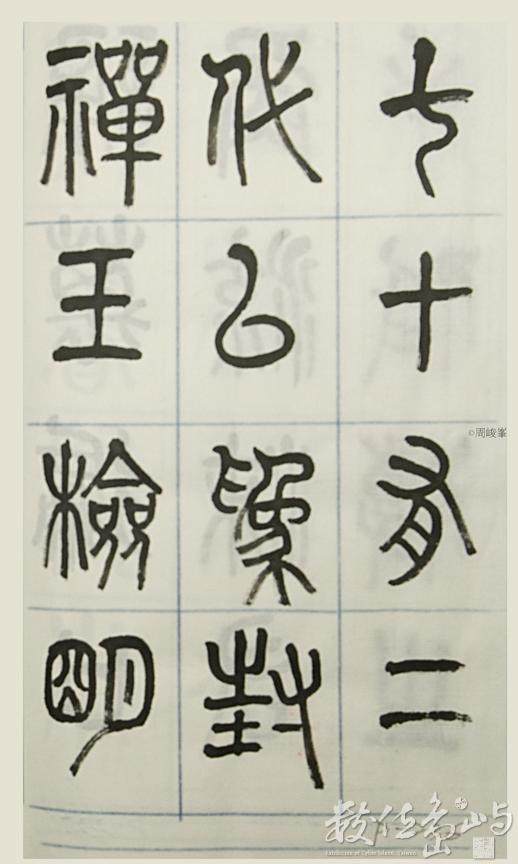 七十有二
代以為封
禪玉檢明
©周峻峯
數位島嶼